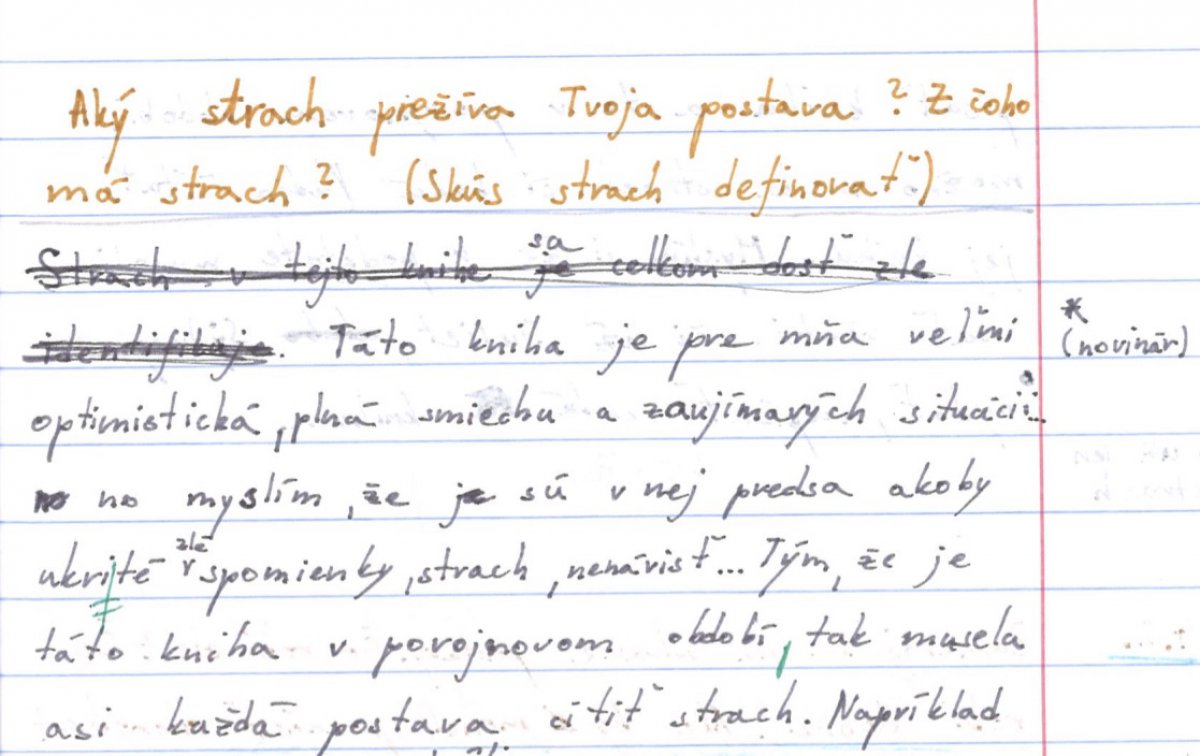 Aký strach prežíva Tvoja postava? Z čoho
má strach? (Skús strach definovať)
Strach v tejto knihe je sa celkom dosť zle
identifikuje. Táto kniha je pre mňa veľmi
* (novinár)
optimistická, plná smiechu a zaujímavých situácií...
no myslím, že je sú v nej predsa akoby
ukrité zlé spomienky, strach, nenávisť... Tým, že je
táto kniha v povojnovom období, tak musela
asi každá postava cítiť strach. Napríklad